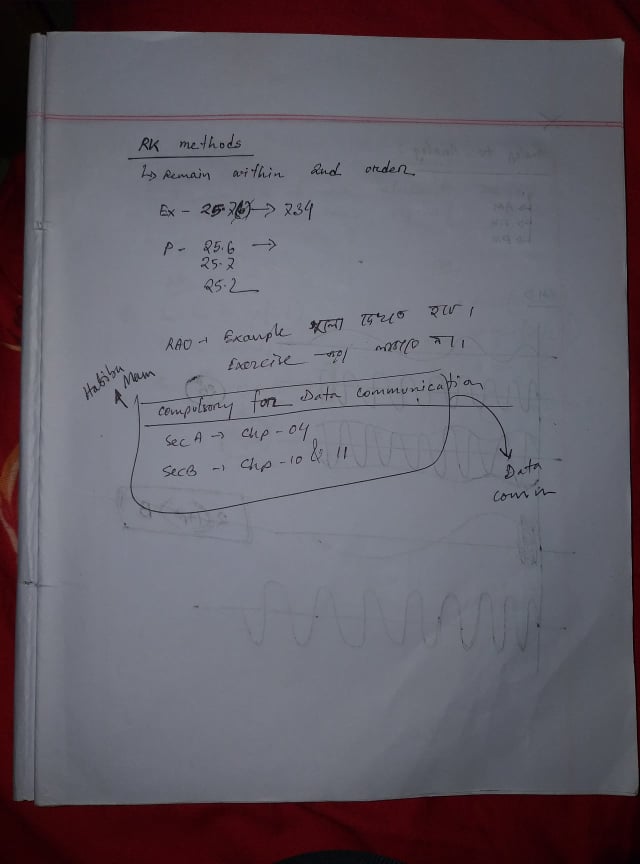 RK methods
↳ Remain within 2nd order
Ex - → 734
P - 25.6 →
25.7
25.2
RAO → Example দেখতে হবে।
Exercise না।
Habiba Mam
Compulsory for Data communication
Sec A → Chp - 04
Sec B → Chp - 10 & 11
Data
comm